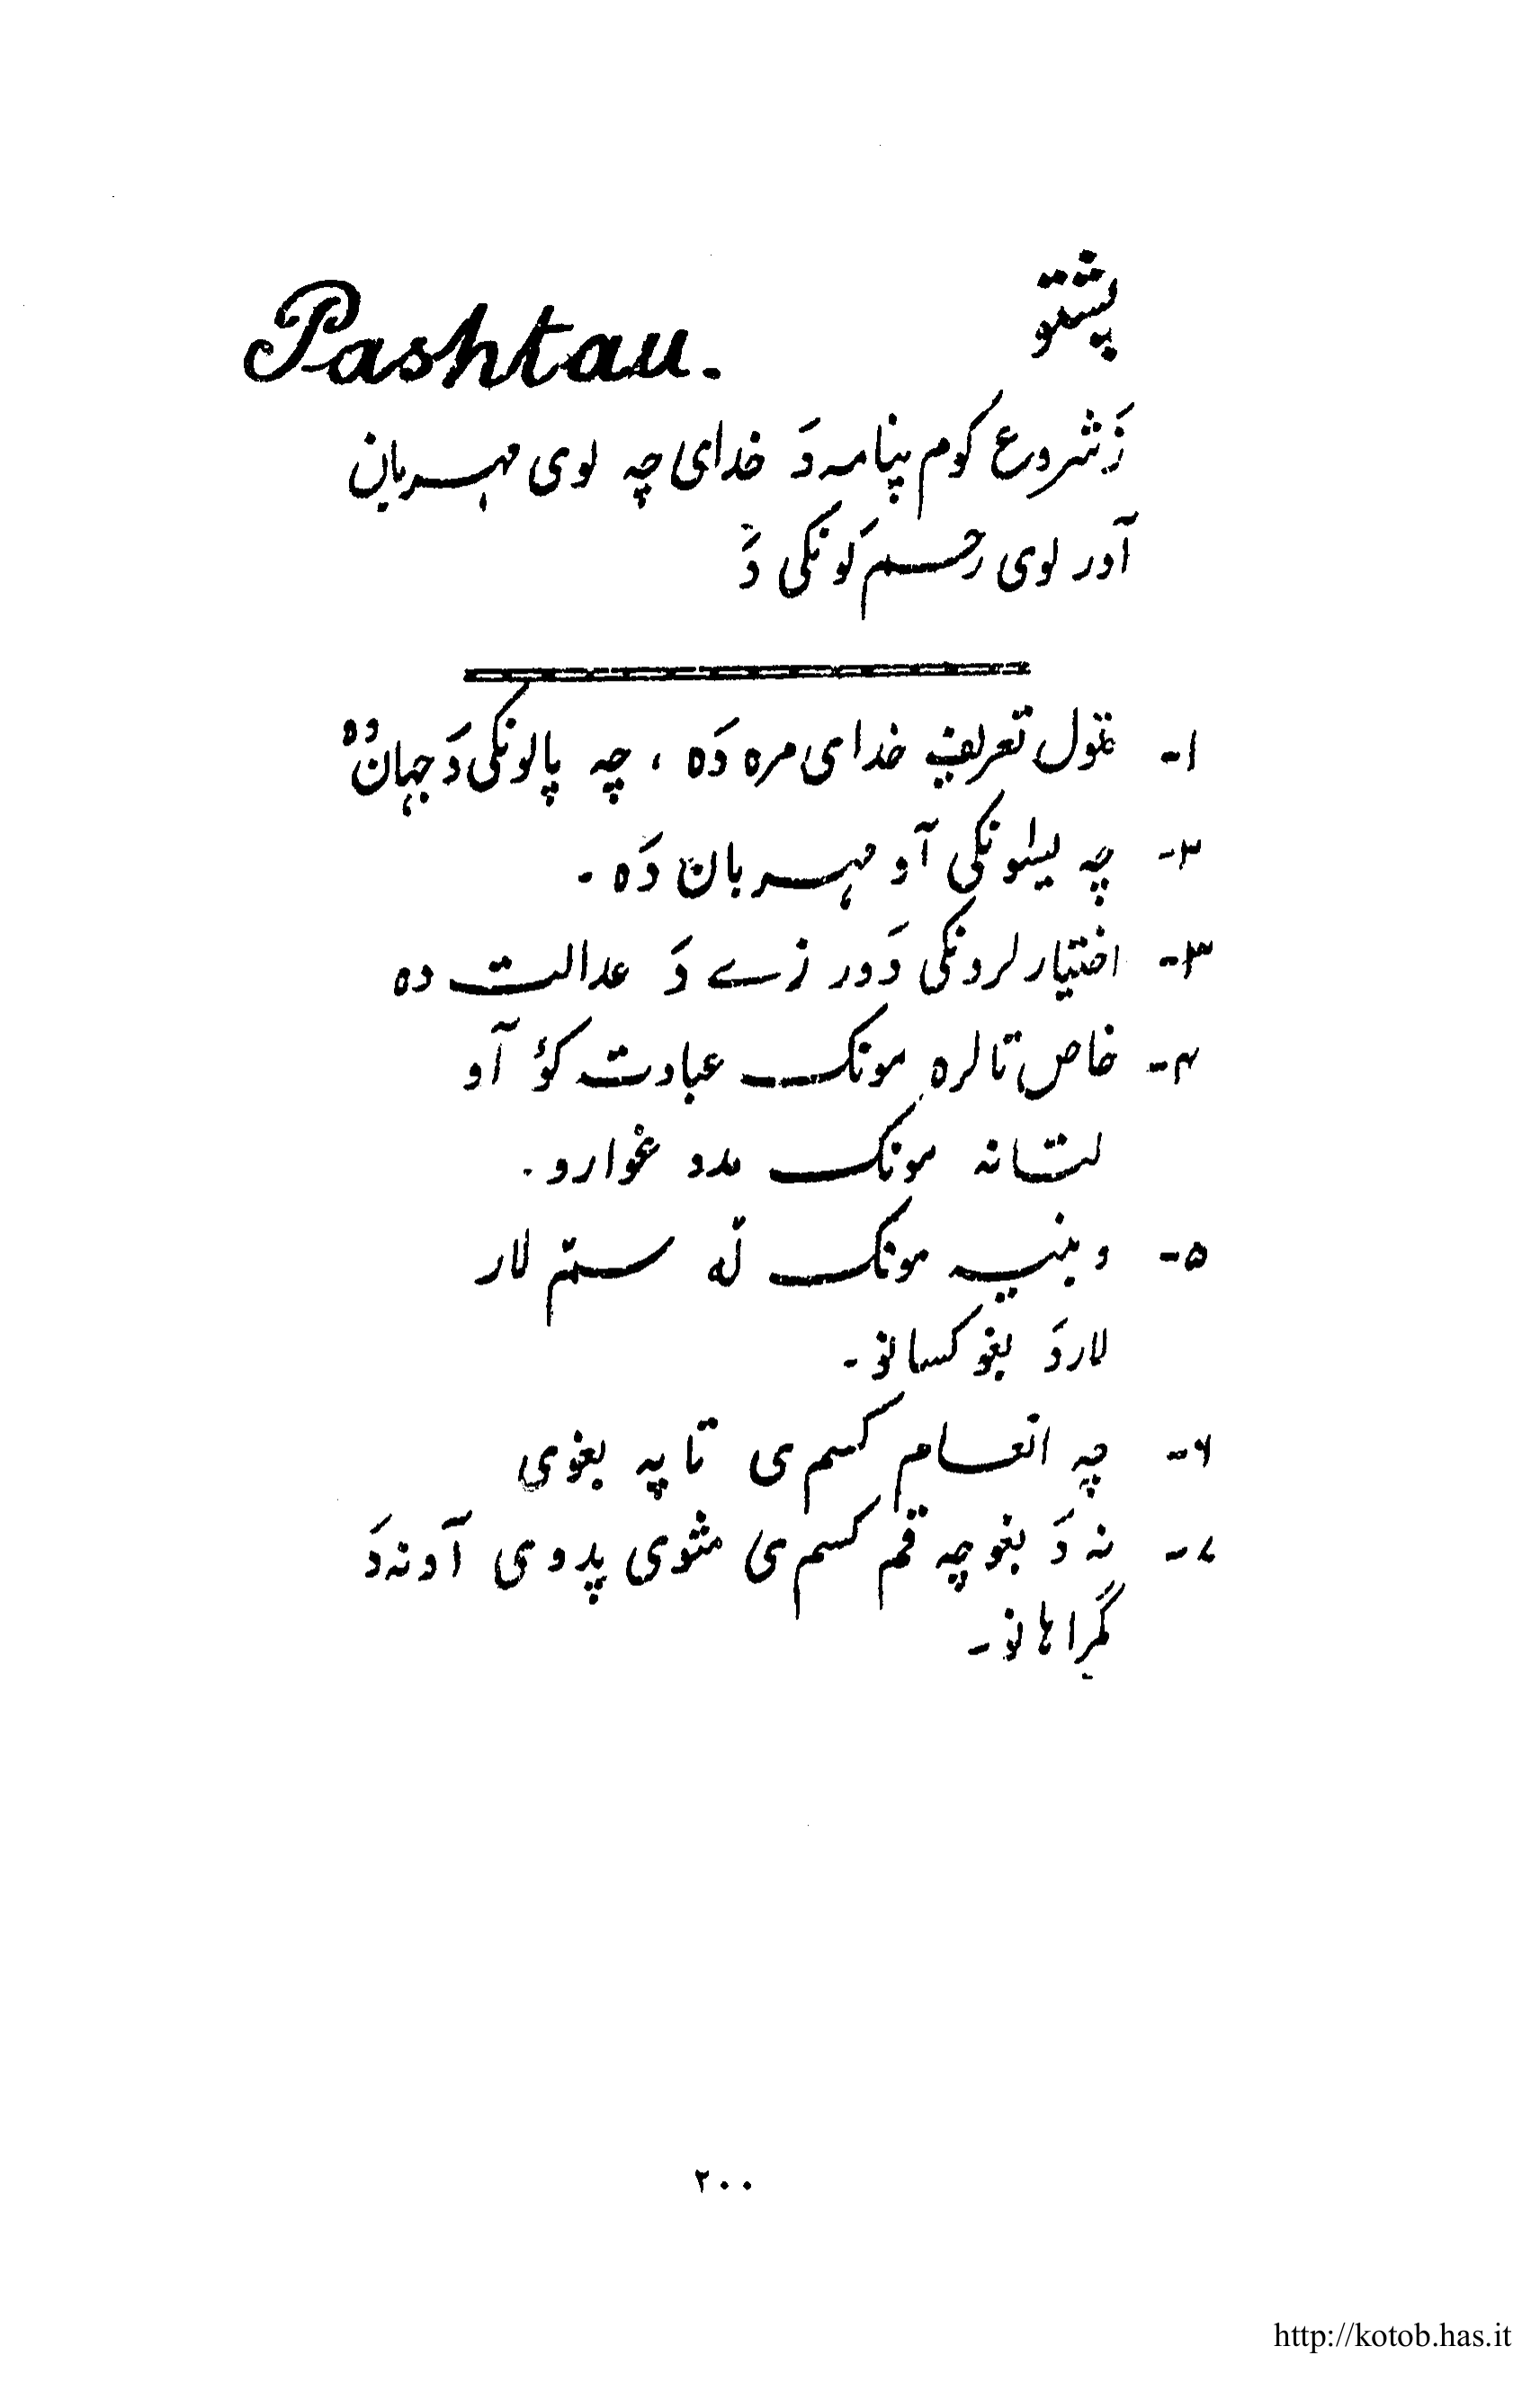 پشتو
Pashtau.
زَ شروع کوم پنامه دَ خدای چه لوی مهربان
آور لوی رحم کَونکی دَ
۱- ټول تعریف خدای مره دَه ، چه پالونکی دَ جهان دُه
۲- چه آو مهربان دَه -
۳- اختیار لرونکی دَ ور زے دَ عدالت ده
۴- خاص تا لره مونک عبادت کوُ آو
لتا نه مونک مدد غوارو -
۵- و مونک لَه ستم لار
لار دَ بغو کسانو -
۶- چه انعام کسم ی تا په بغوی
۷- نه دَ بغو چه قم کسم ی مثوی پدوی آو نه دَ
گمراهانو -
۲۰۰
http://kotob.has.it